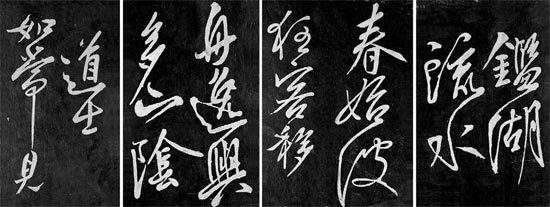 鑑湖
流水
春始波
狂客移
舟逸興
多山陰
道士
如常見